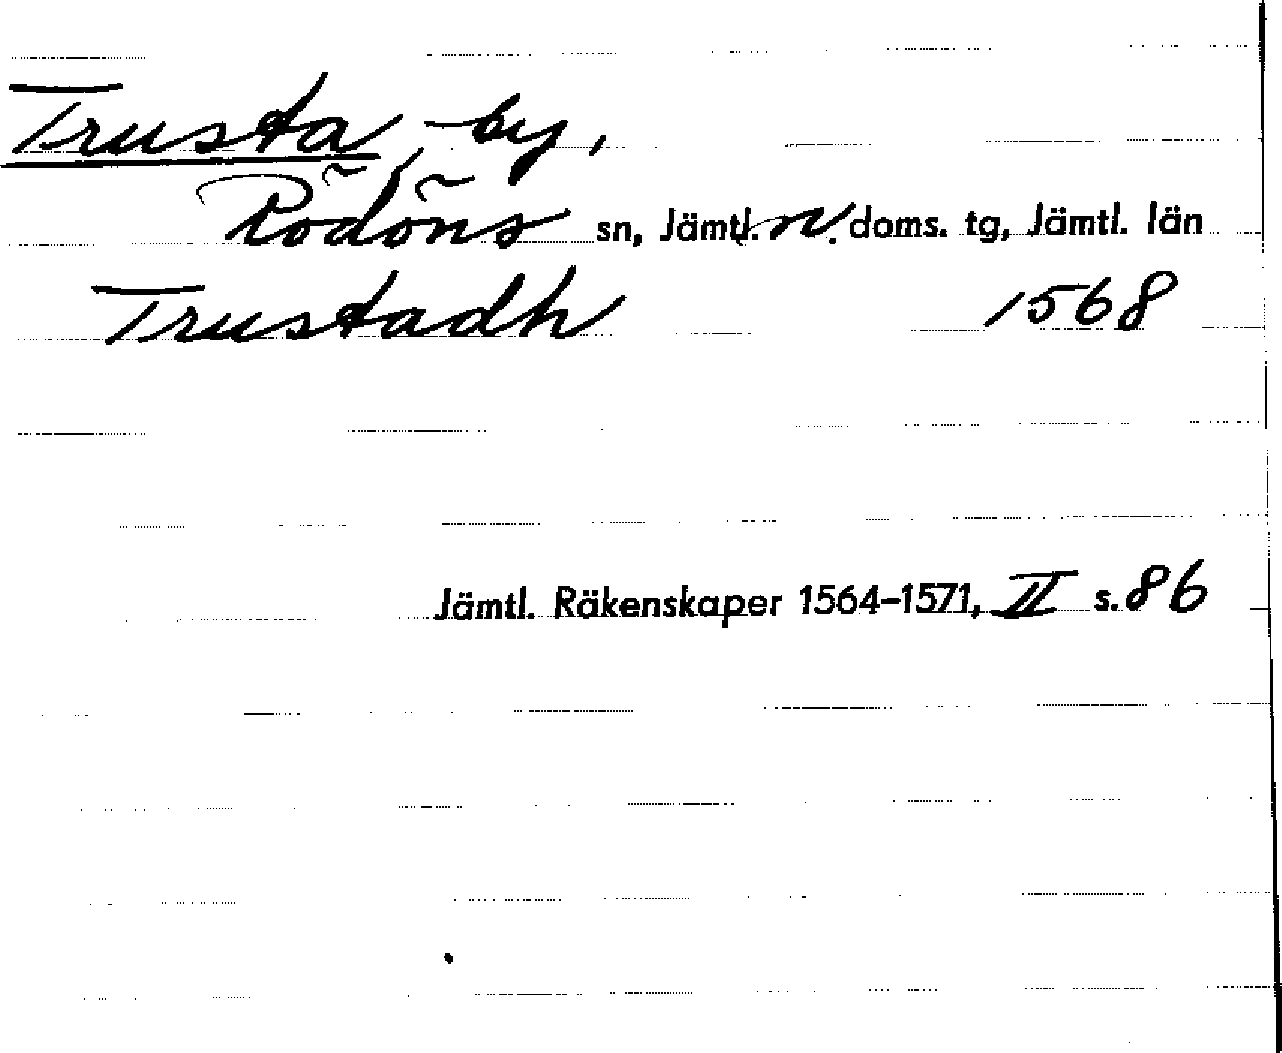 Trusta, by,
Rödöns sn, Jämtl. v. doms. tg, Jämtl. län
Trustadh 1568
Jämtl. Räkenskaper 1564-1571, II s. 86